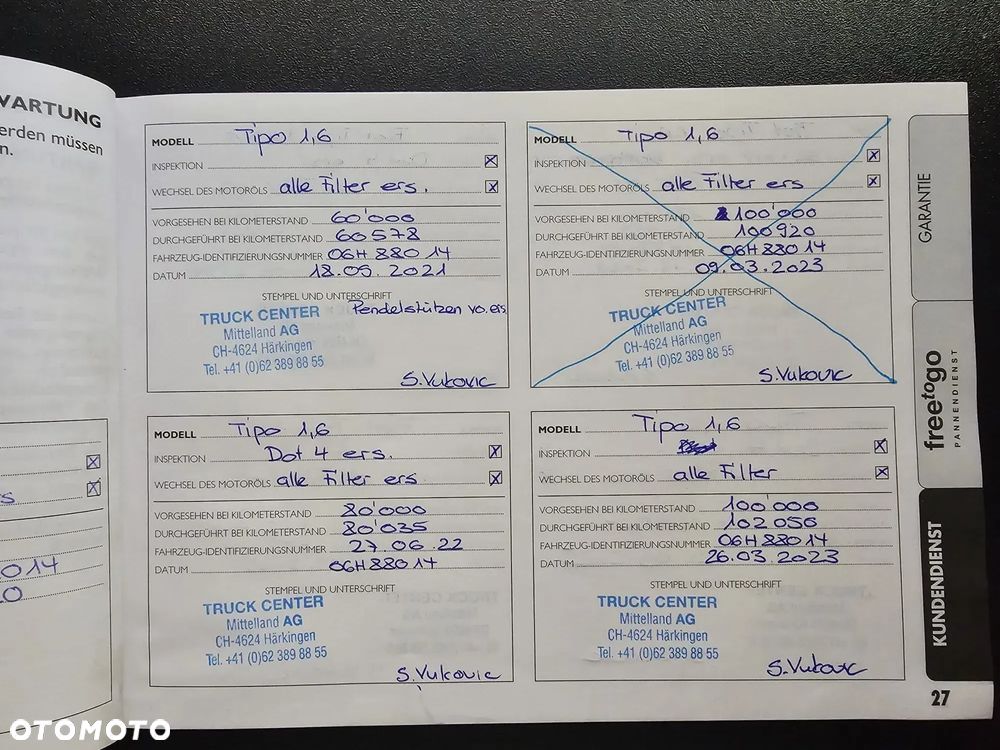 WARTUNG
erden müssen
n.
s
014
0
MODELL Tipo 1,6
INSPEKTION
WECHSEL DES MOTORÖLS alle Filter ers.
VORGESEHEN BEI KILOMETERSTAND 60'000
DURCHGEFÜHRT BEI KILOMETERSTAND 60578
FAHRZEUG-IDENTIFIZIERUNGSNUMMER 06H88014
DATUM 18.05.2021
STEMPEL UND UNTERSCHRIFT
Pendelstützen vo. ers
TRUCK CENTER
Mittelland AG
CH-4624 Härkingen
Tel. +41 (0)62 389 88 55
S.Vukovic
MODELL Tipo 1,6
INSPEKTION
WECHSEL DES MOTORÖLS alle Filter ers
VORGESEHEN BEI KILOMETERSTAND 100'000
DURCHGEFÜHRT BEI KILOMETERSTAND 100920
FAHRZEUG-IDENTIFIZIERUNGSNUMMER 06H88014
DATUM 09.03.2023
STEMPEL UND UNTERSCHRIFT
TRUCK CENTER
Mittelland AG
CH-4624 Härkingen
Tel. +41 (0)62 389 88 55
S.Vukovic
MODELL Tipo 1,6
INSPEKTION Dot 4 ers.
WECHSEL DES MOTORÖLS alle Filter ers
VORGESEHEN BEI KILOMETERSTAND 80'000
DURCHGEFÜHRT BEI KILOMETERSTAND 80'035
FAHRZEUG-IDENTIFIZIERUNGSNUMMER 27.06.22
DATUM 06H88014
STEMPEL UND UNTERSCHRIFT
TRUCK CENTER
Mittelland AG
CH-4624 Härkingen
Tel. +41 (0)62 389 88 55
S.Vukovic
MODELL Tipo 1,6
INSPEKTION
WECHSEL DES MOTORÖLS alle Filter
VORGESEHEN BEI KILOMETERSTAND 100'000
DURCHGEFÜHRT BEI KILOMETERSTAND 102056
FAHRZEUG-IDENTIFIZIERUNGSNUMMER 06H88014
DATUM 26.03.2023
STEMPEL UND UNTERSCHRIFT
TRUCK CENTER
Mittelland AG
CH-4624 Härkingen
Tel. +41 (0)62 389 88 55
S.Vukovic
GARANTIE
freetogo
PANNENDIENST
KUNDENDIENST
27
OTOMOTO